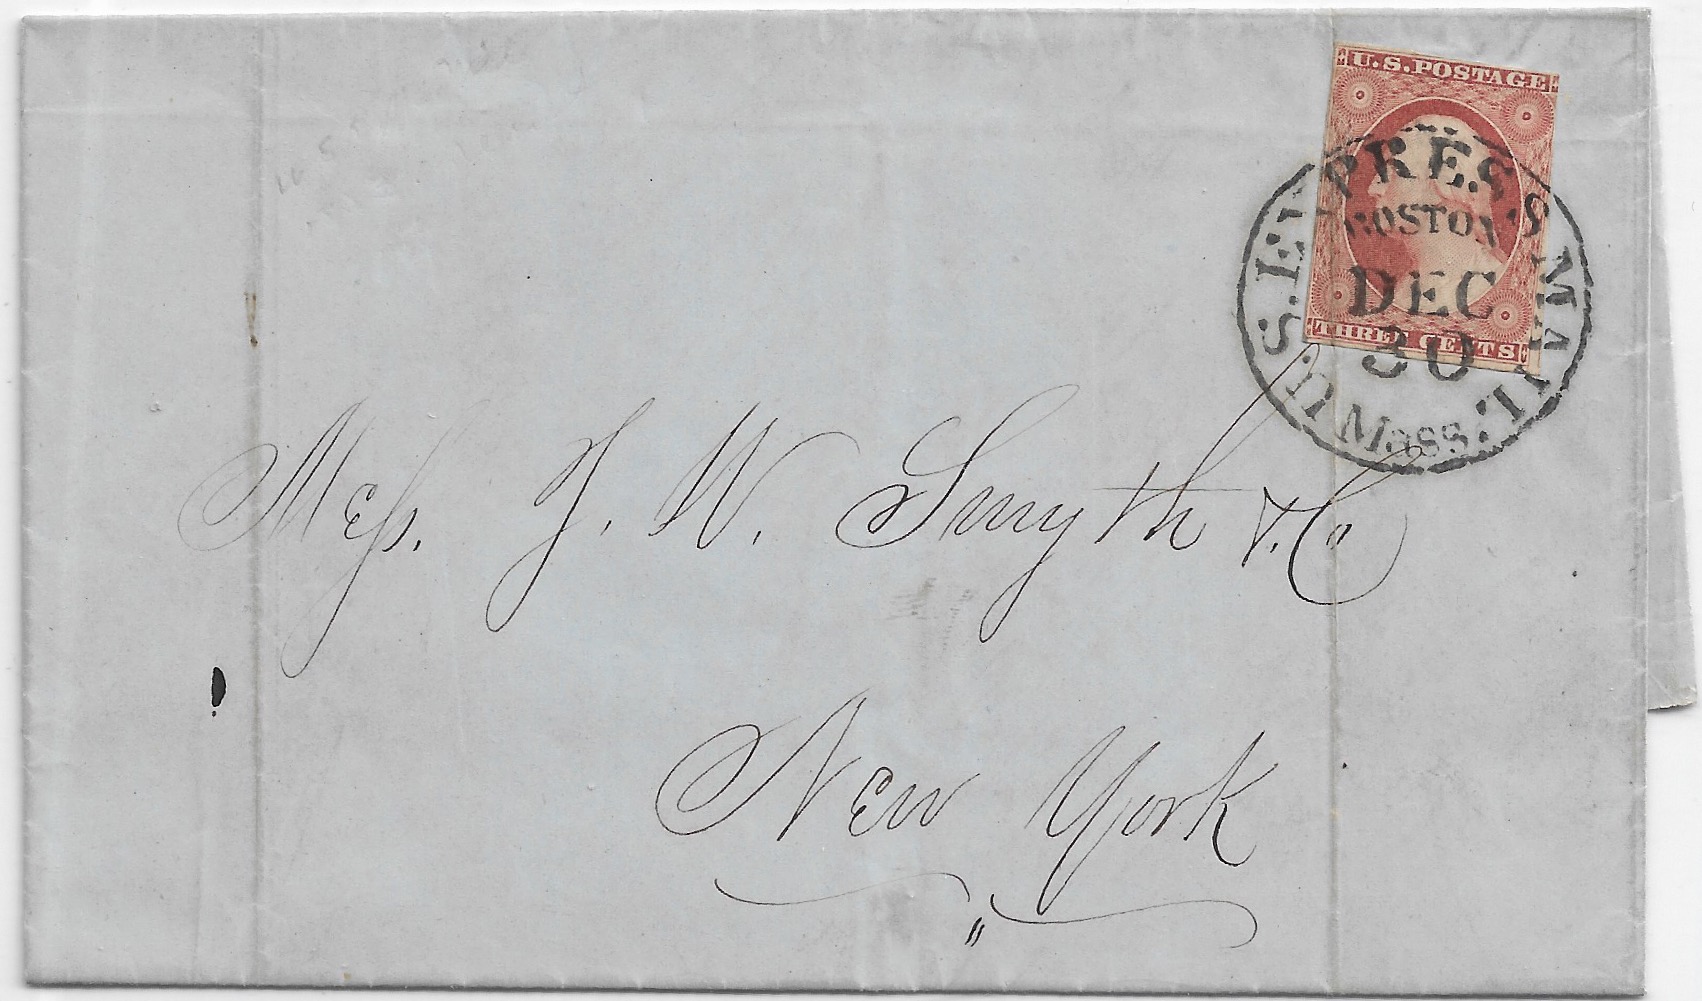 U.S. POSTAGE
THREE CENTS
U.S. EXPRESS MAIL
BOSTON
DEC
30
Mass.
Mess. J. W. Smyth & Co
New York